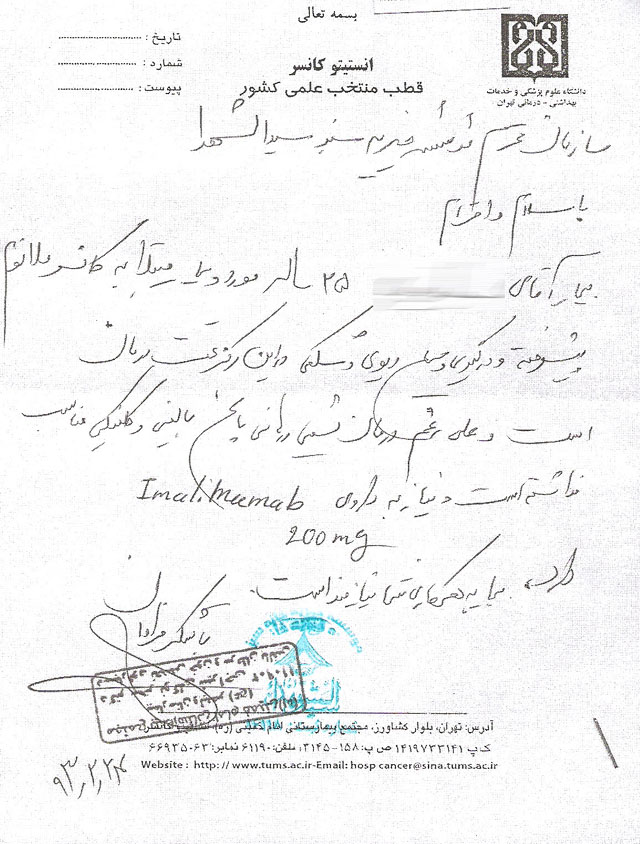 بسمه تعالی
انستیتو کانسر
قطب منتخب علمی کشور
تاریخ :
شماره :
پیوست :
دانشگاه علوم پزشکی و خدمات
بهداشتی - درمانی تهران
سازمان محترم مؤسسه خیریه سید الشهدا
با سلام و احترام
بیمار آقای ۲۵ ساله مورد مبتلا به کانسر ملانوم
پیشرفته و درگیری ریوی و شکمی در این مرکز تحت درمان
است و علی رغم درمان شیمی درمانی پاسخ بالینی و کلینیکی مناسب
نداشته است و نیاز به داروی
200 mg
دارد. به همکاری شما نیازمند است.
با تشکر فراوان
آدرس: تهران، بلوار کشاورز، مجتمع بیمارستانی امام خمینی (ره)
ک پ ۱۴۱۹۷۳۳۱۴۱ ص پ: ۱۵۸-۳۱۴۵، تلفن: ۶۱۱۹۰ نمابر: ۶۶۹۳۵۰۶۳
Website : http://www.tums.ac.ir-Email: hosp cancer@sina.tums.ac.ir
۹۳,۲,۲۴